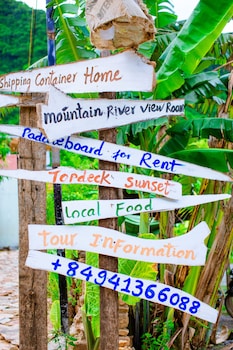 Shipping Container Home
mountain River view Room
Paddleboard for Rent
Topdeck Sunset
Local Food
Tour Information
+84941366088